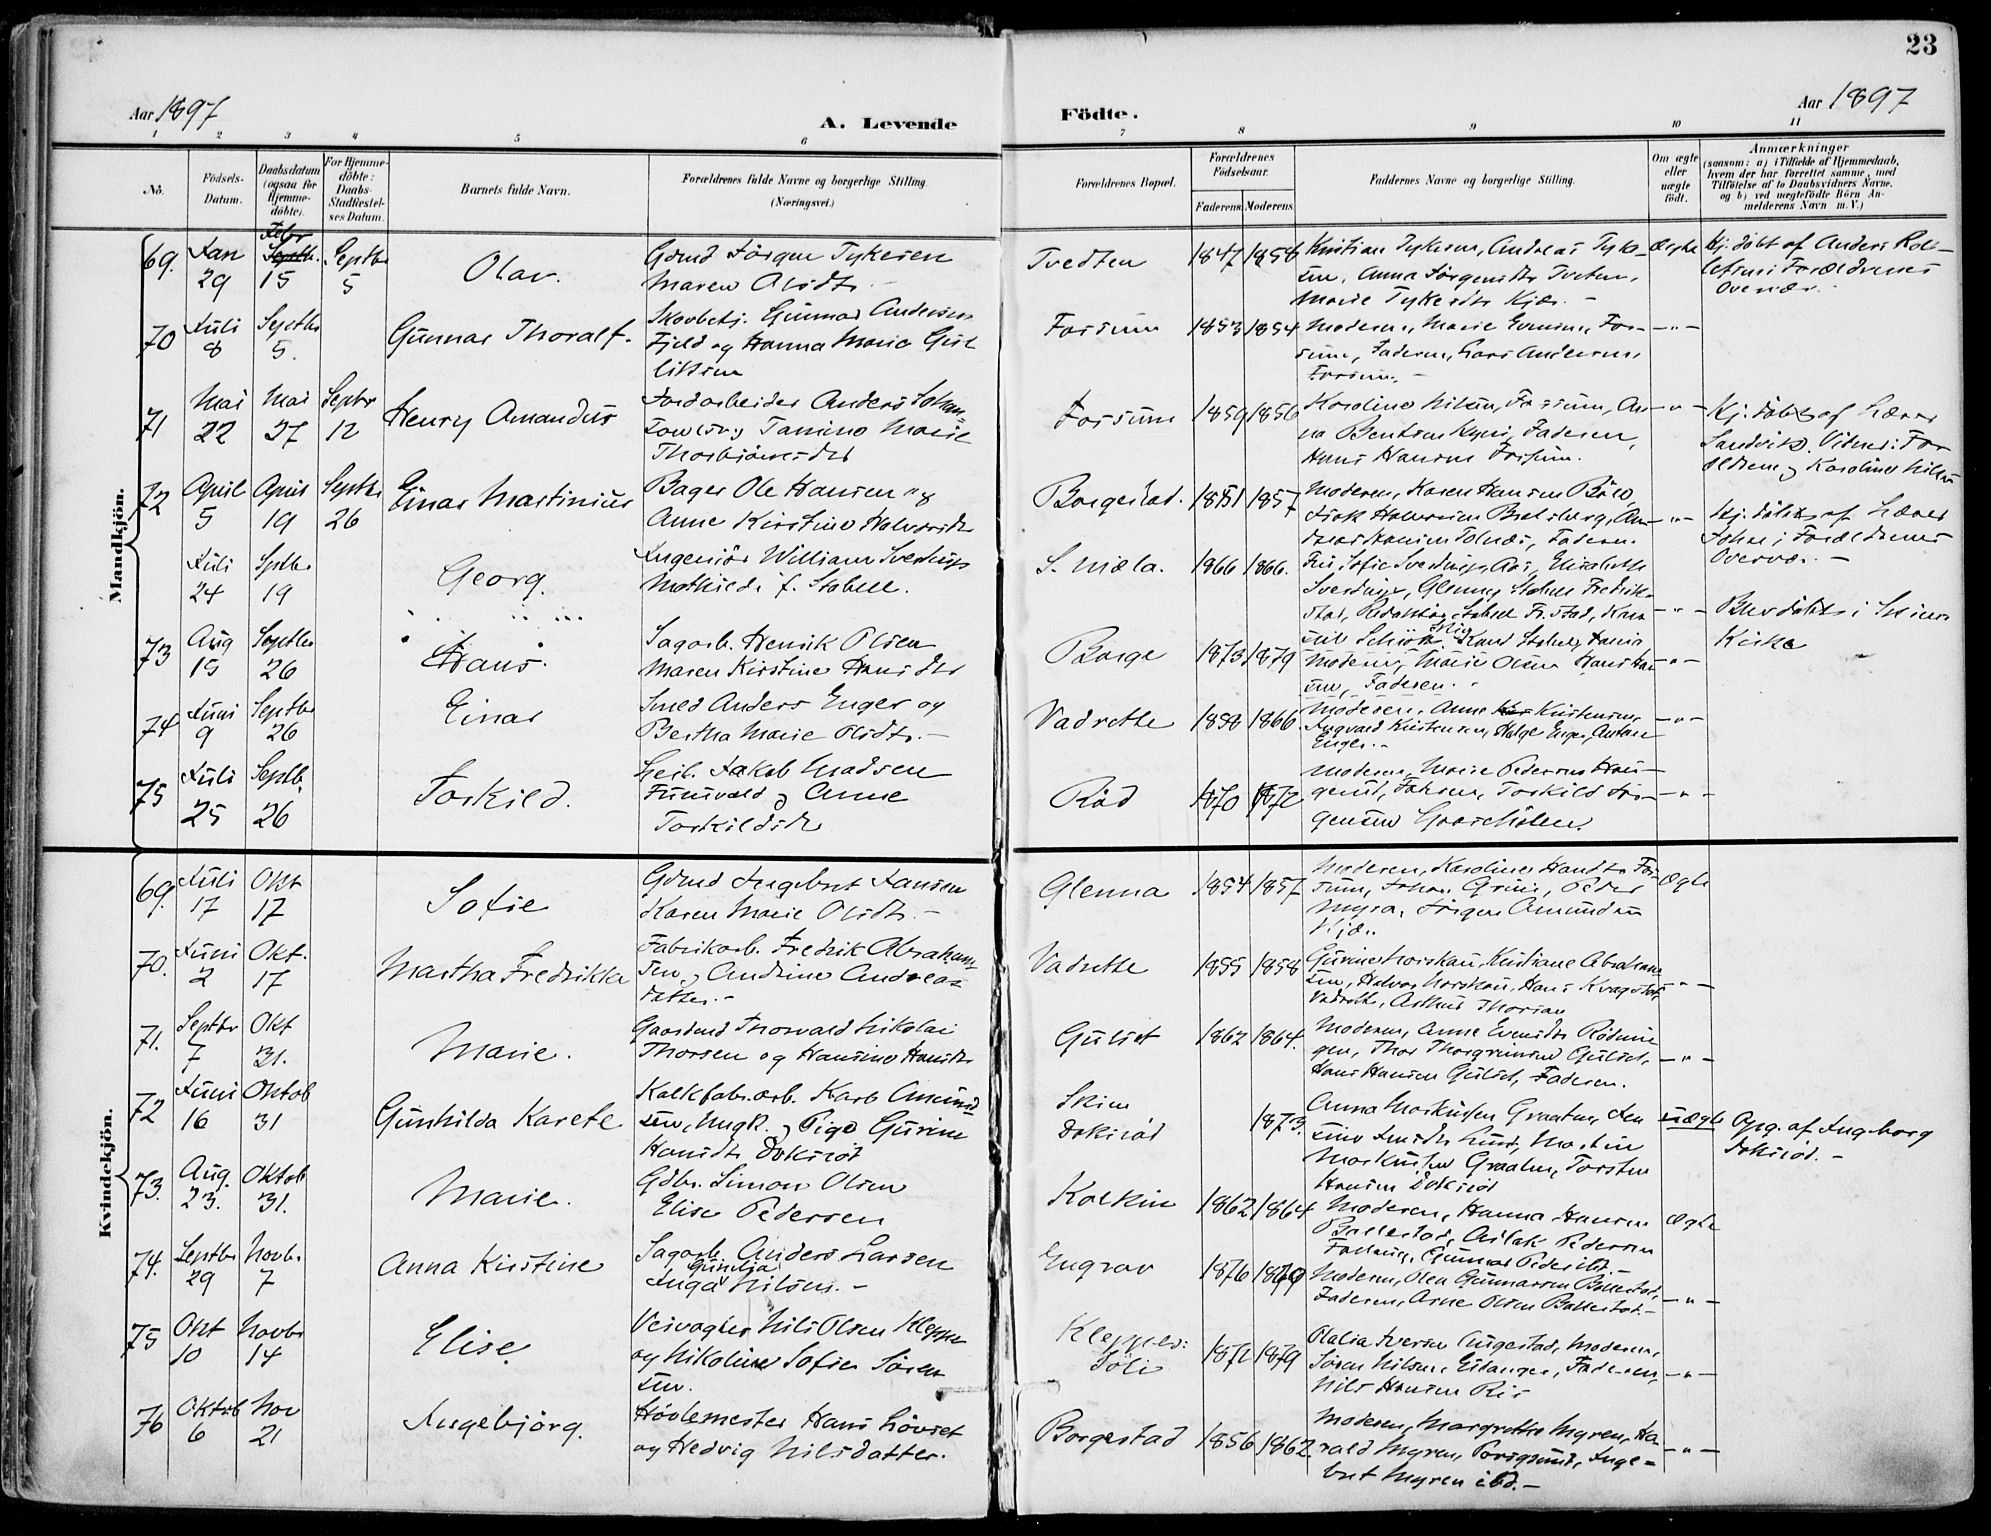 23
Aar 1897
A. Levende
Födte.
Aar 1897
1 2 3 4 5 6 7 8 9 10 11
No.
Födsels-
Datum.
Daabsdatum
(ogsaa for
Hjemme-
döbte).
For Hjemme-
döbte:
Daabs-
Stadfæstel-
ses Datum.
Barnets fulde Navn.
Forældrenes fulde Navne og borgerlige Stilling.
(Næringsvei.)
Forældrenes Bopæl.
Forældrenes
Födselsaar.
Faderens. Moderens.
Faddernes Navne og borgerlige Stilling.
Om ægte
eller
uægte
födt.
Anmærkninger
(saasom: a) i Tilfælde af Hjemmedaab,
hvem der har forrettet samme, med
Tilföielse af to Daabsvidners Navne,
og b) ved uægtefödte Börn An-
melderens Navn m. V.)
Mandkjön.
69. Jan 29 Febr 15 Septbr 5
Olav.
Gdmd Jörgen Tykesen
Maren Olsdtr.
Tvedten 1847 1856
Kristian Tykesen, Andreas Tyke-
sen, Anna Jörgensdtr Tveten,
Marie Tykesdtr Kjær. -
ægte
Hj. döbt af Anders Rol-
lefsen i Forældrenes
Overvær.
70 Juli 8 Septbr 5.
Gunnar Thoralf.
Skovbetj. Gunnar Andersen
Fjeld og Hanna Marie Gul
liksen
Fossum 1853 1854
Moderen, Marie Evensen, Fos-
sum, Faderen, Lars Andersen,
Fossum. -
- " -
71 Mai 22 Mai 27 Septbr 12
Henry Amandus
Jordarbeider Anders Johan-
Tomine Marie
Thorbjörnsdtr
Fossum 1859 1856
Karoline Nilsen, Fossum, An-
na Bentsen Faderen,
Hans Hansen Fossum.
- " -
Hj. döbt af Lærer
Sandvik. Vidner: For
ældrene og Karoline Nilsen
72 April 5 April 19 Septbr 26
Einar Martinius
Bager Ole Hansen og
Anne Kirstine Halvorsdtr
Borgestad. 1851 1857
Moderen, Karen Hansen
Isak Halvorsen Bratsberg, An-
dreas Hansen Tolnæs, Faderen.
- " -
Hj. döbt af Lærer
i Forældrenes
Overvær. -
Juli 24 Septbr 19
Georg.
Ingeniör William Sverdrup
Mathilde f. Stabell.
S. Mæla. 1866 1866.
Fru Sofie Sverdrup, Aas, Elisabeth
Sverdrup, Stabell Fredrik-
stad, Redaktör Stabell Fr.stad,
- " -
Blev döbt i Skiens
Kirke
73 Aug 15 Septbr 26
Hans.
Sagarb. Henrik Olsen
Maren Kirstine Hansdtr
Borge 1873 1879
Moderen, Marie Olsen Hans Han
sen, Faderen.
- " -
74 Juni 9 Septbr 26
Einar
Smed Anders Enger og
Bertha Marie Olsdtr. -
Vadrette 1858 1866.
Moderen, Anne Kristensen,
Ingvald Kristensen, Helge Enger, Anton
Enger. -
- " -
75 Juli 25 Septb. 26
Torkild.
Leil. Jakob Madsen
og Anne
Torkildsdtr
Röd 1870 1872
Moderen, Marie Pedersen Hau-
gerud, Torkild Jör-
gensen
- " -
Kvindekjön.
69. Juli 17 Okt 17
Sofie
Gdmd Ingebret Jansen
Karen Marie Olsdtr. -
Glenna 1854 1857
Moderen, Karoline Hansdtr Fos-
sum, Johan Grini, Peder
Myra, Jörgen Amundsen
Kjær.
Ægte
70. Juni 2 Okt. 17
Martha Fredrikke
Fabrikarb. Fredrik Abraham-
sen og Andrine Andreas
datter. -
Vadrette 1855 1858
Gurine Norskau, Kristiane Abraham-
sen, Halvor Norskau, Hans
Vadrette,
- " -
71. Septbr 7 Okt 31.
Marie.
Gaardmd Thorvald Nikolai
Thorsen og Hansine Hansdtr
Gulset 1862 1864.
Moderen, Anne Evensdtr Rödmin-
gen, Thor Thorgrimsen Gulset,
Hans Hansen Gulset, Faderen.
- " -
72 Juni 16 Oktob 31
Gunhilda Karete
Kalkfabr.arb. Karl Amund
sen, Ungk. og Pige Gurine
Hansdtr Doksröd
Skien
Doksröd 1873.
Anna Markussen Graaten, Jen
sine Lund, Martin
Markussen Graaten, Torsten
Hansen Doksröd
uægte
Opg. af Ingeborg
Doksröd. -
73. Aug. 23. Oktob 31.
Marie.
Gdbr. Simon Olsen
Elise Pedersen
Kolkin 1862 1864
Moderen, Hanna Hansen
Ballestad, Aslak Pedersen
Gunnar Peder ibd. -
Ægte
74. Septbr 29 Novbr 7
Anna Kirstine
Sagarb. Anders Larsen
Gunilja
Inga Nilsen. -
Engrav 1876 1879
Moderen, Olea Gunnarsen Ballestad,
Faderen, Arne Olsen Ballestad. -
- " -
75 Okt 10 Novbr 14
Elise
Veivogter Nils Olsen Kleppen
og Nikoline Sofie Sören
sen.
1872 1879
Olalia Iversen Augestad, Moderen,
Sören Nilsen, Eidanger, Faderen,
Nils Hansen Ris
- " -
76 Oktob 6 Nov 21
Ingebjörg.
Hövlemester Hans Lövset
og Hedvig Nilsdatter.
Borgestad 1856 1862.
Moderen, Margrethe Myren, Ha-
rald Myren, Porsgrund, Inge-
bret Myren ibd. -
- " -